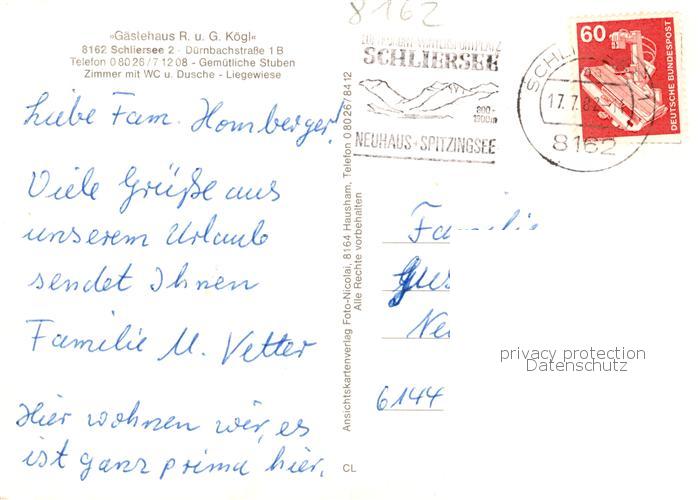 8162
»Gästehaus R. u. G. Kögl«
8162 Schliersee 2 · Dürnbachstraße 1 B
Telefon 0 80 26 / 7 12 08 - Gemütliche Stuben
Zimmer mit WC u. Dusche - Liegewiese
Liebe Fam. Homberger!
Viele Grüße aus
unserem Urlaub
sendet Ihnen
Familie M. Vetter
Hier wohnen wir, es
ist ganz prima hier.
Ansichtskartenverlag Foto-Nicolai, 8164 Hausham, Telefon 0 80 26 / 84 12
Alle Rechte vorbehalten
CL
SCHLIERSEE
800-
1900m
NEUHAUS + SPITZINGSEE
17.7.82
8162
60
DEUTSCHE BUNDESPOST
Familie
6144
privacy protection
Datenschutz